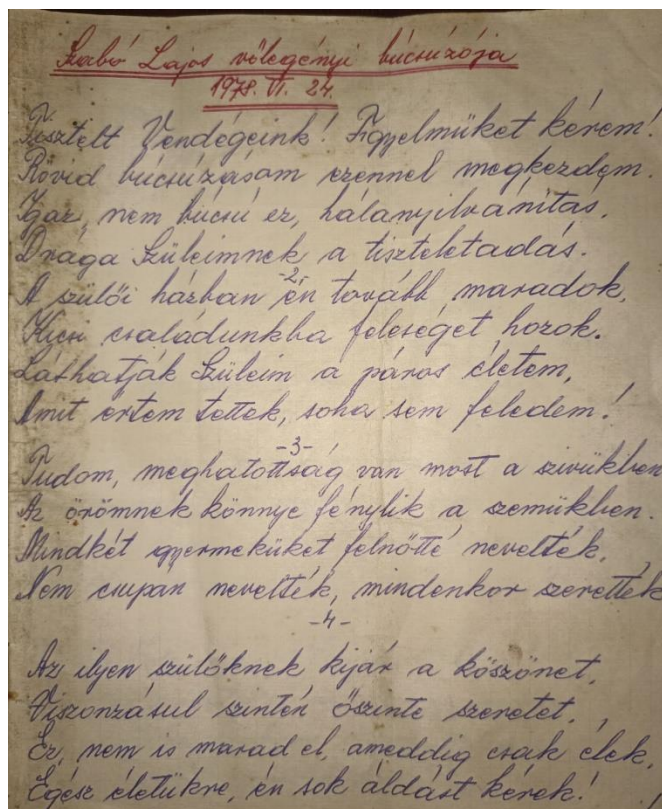 Szabó Lajos vőlegényi búcsúzója
1978. VI. 24.
Tisztelt Vendégeink! Figyelmüket kérem!
Rövid búcsúzásom ezennel megkezdem.
Igaz, nem búcsú ez, hálanyilvánítás,
Drága Szüleimnek a tiszteletadás.
-2-
A szülői házban én tovább maradok,
Kicsi családunkba feleséget hozok.
Láthatják Szüleim a páros életem,
Amit értem tettek, soha sem feledem!
-3-
Tudom, meghatottság van most a szivükben
Az örömnek könnye fénylik a szemükben.
Mindkét gyermeküket felnőtté nevelték,
Nem csupán nevelték, mindenkor szerették
-4-
Az ilyen szülőknek kijár a köszönet,
Viszonzásul szintén őszinte szeretet.
Ez, nem is marad el, ameddig csak élek,
Egész életükre, én sok áldást kérek!